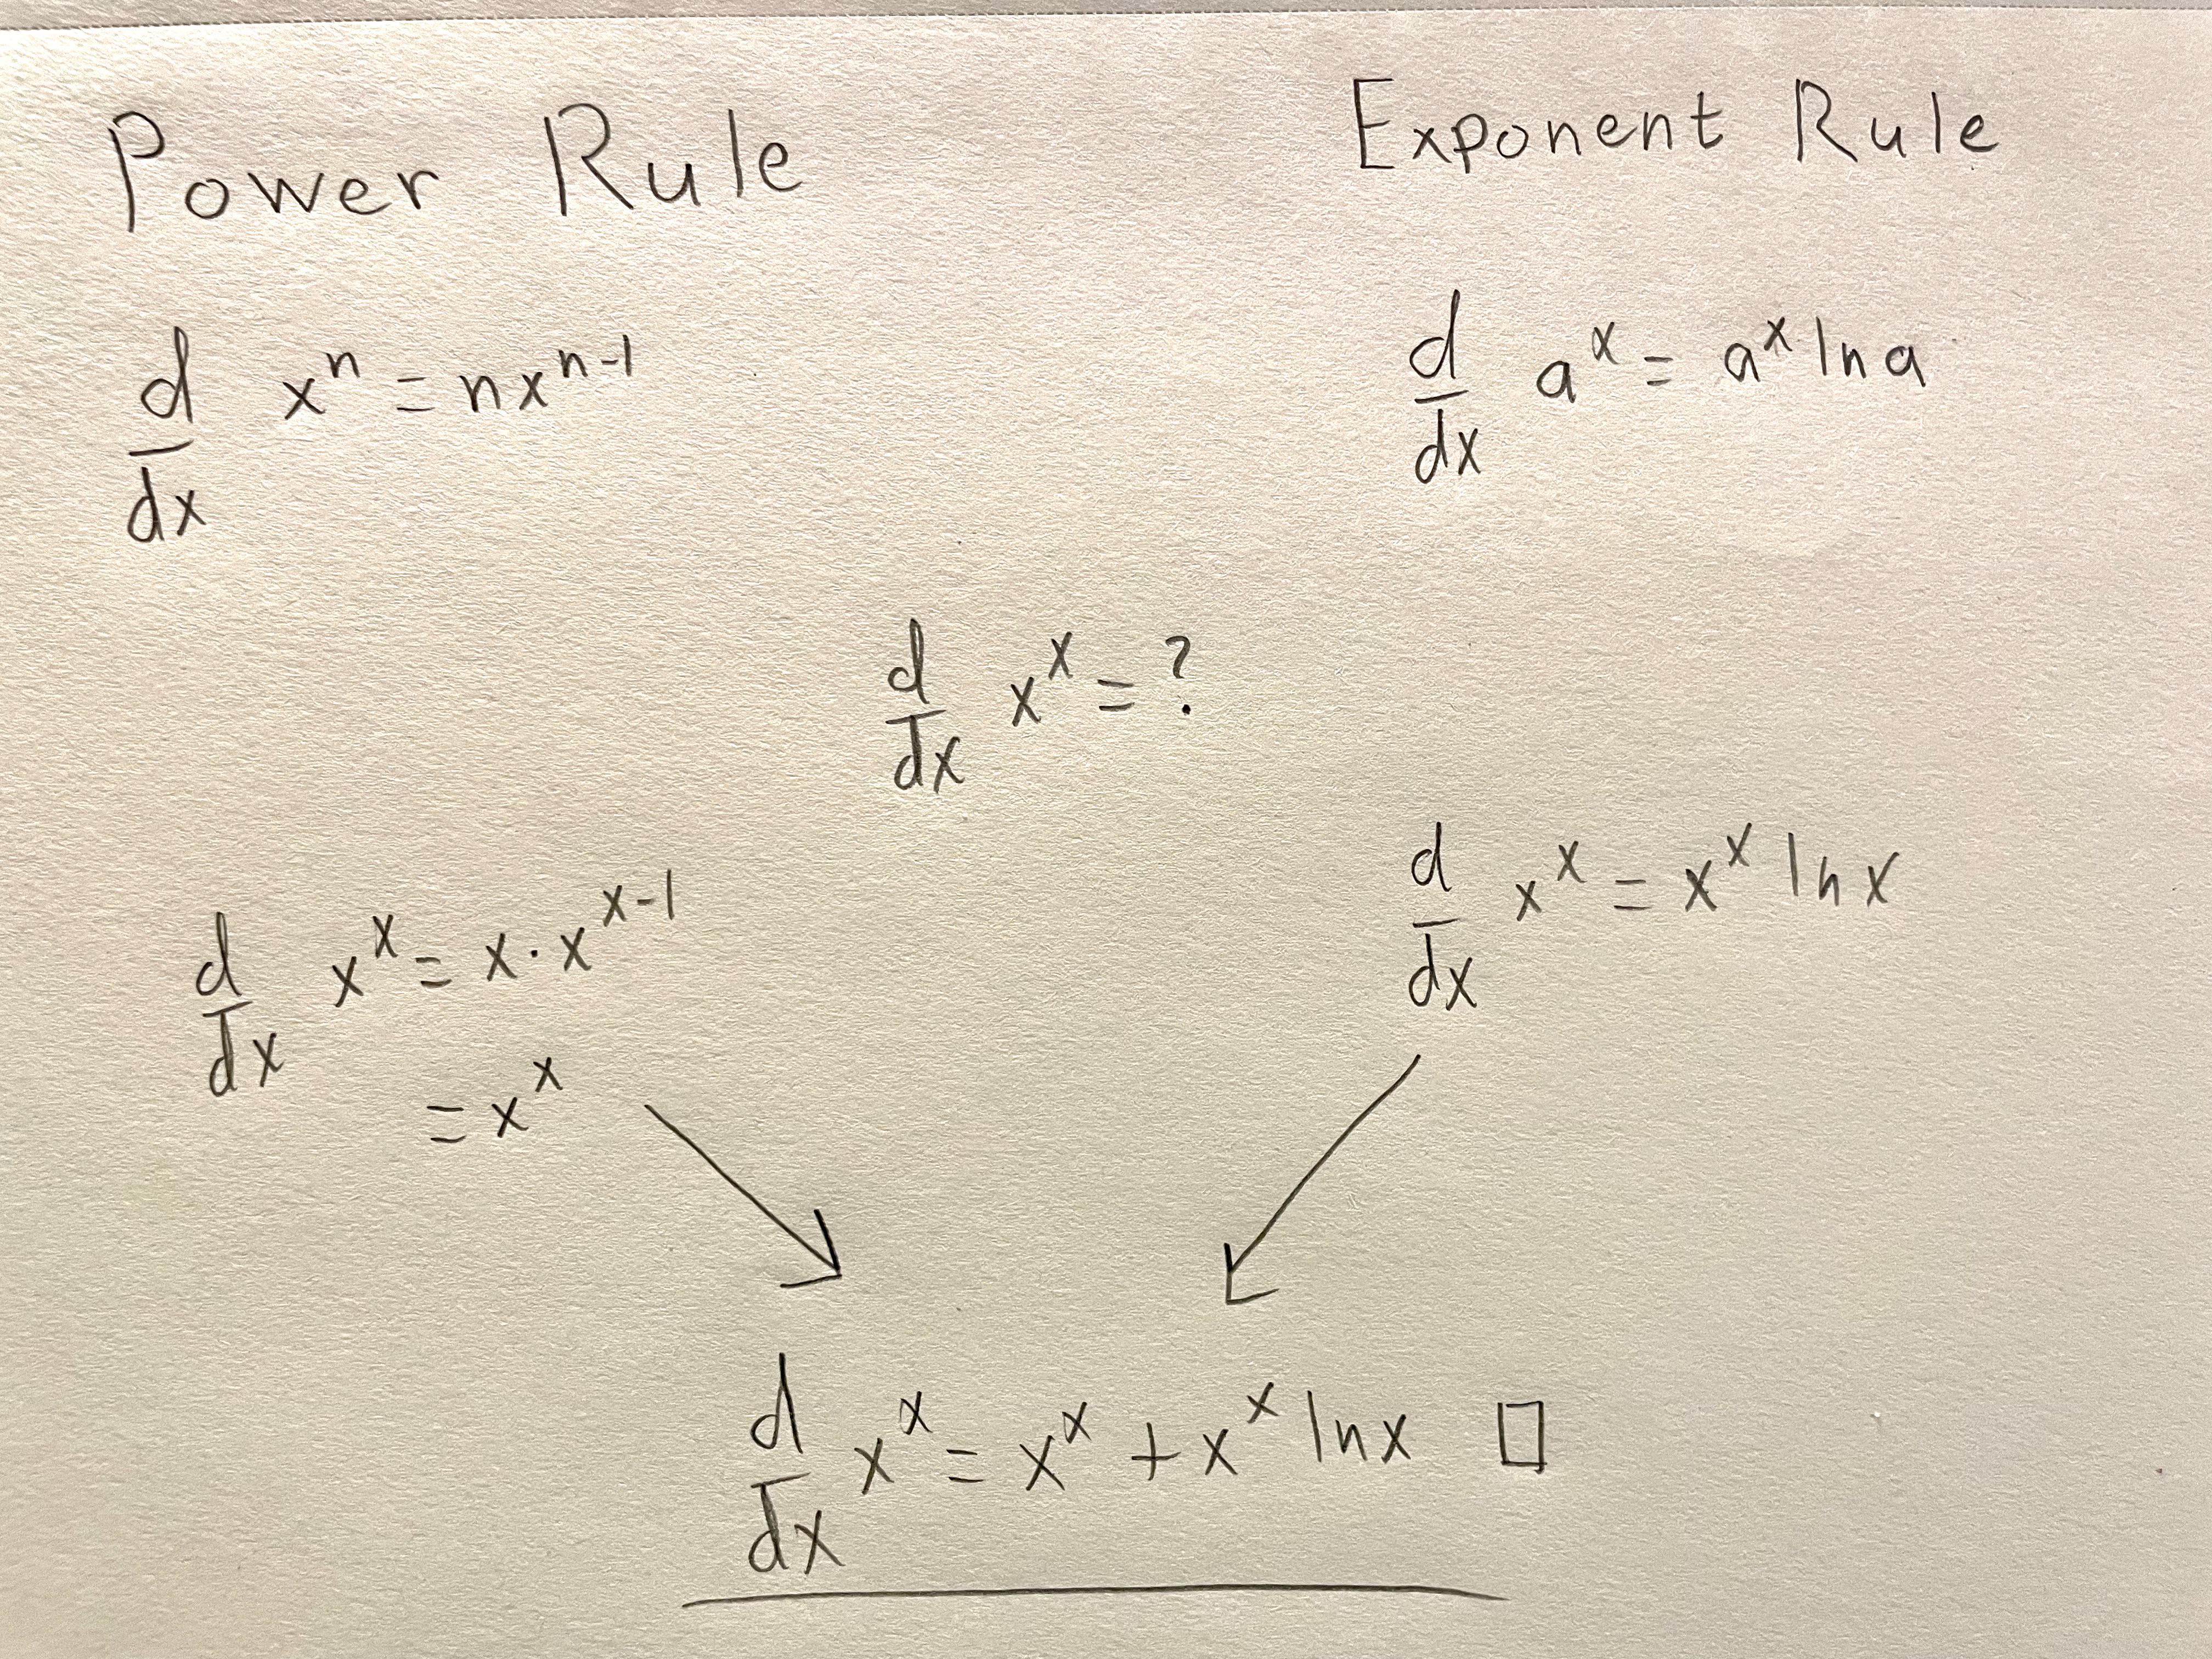 Power Rule
Exponent Rule
d/dx xⁿ = nxⁿ⁻¹
d/dx aˣ = aˣ ln a
d/dx xˣ = ?
d/dx xˣ = x · xˣ⁻¹
= xˣ
d/dx xˣ = xˣ ln x
d/dx xˣ = xˣ + xˣ ln x □